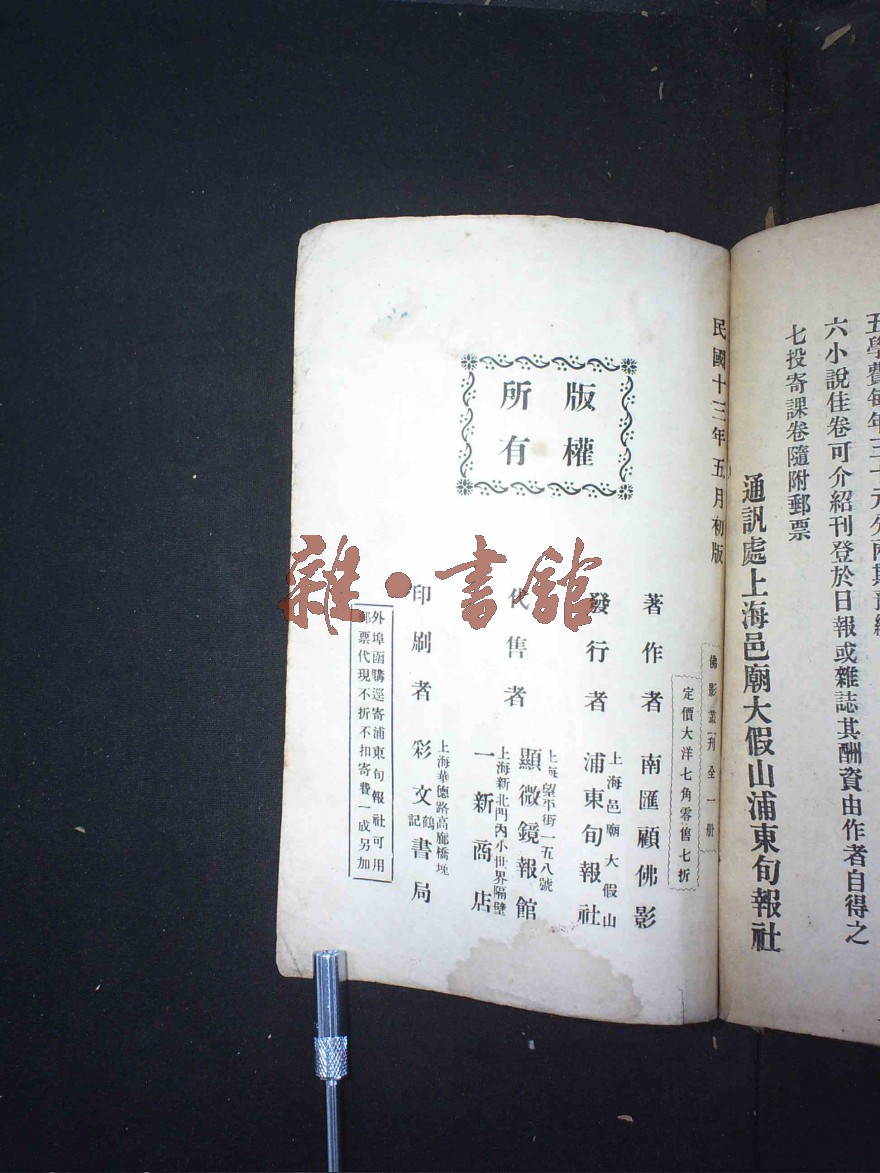 六小說佳卷可介紹刊登於日報或雜誌其酬資由作者自得之
七投寄課卷隨附郵票
通訊處上海邑廟大假山浦東旬報社
民國十三年五月初版
版權
所有
佛影叢刊全一冊
定價大洋七角零售七折
著作者 南匯顧佛影
發行者 上海邑廟大假山 浦東旬報社
代售者 上海望平街一五八號 顯微鏡報館
上海新北門內小世界隔壁 一新商店
印刷者 上海華德路高廊橋堍 彩文鶴記書局
外埠函購逕寄浦東旬報社可用
郵票代現不折不扣寄費一成另加
雜·書館